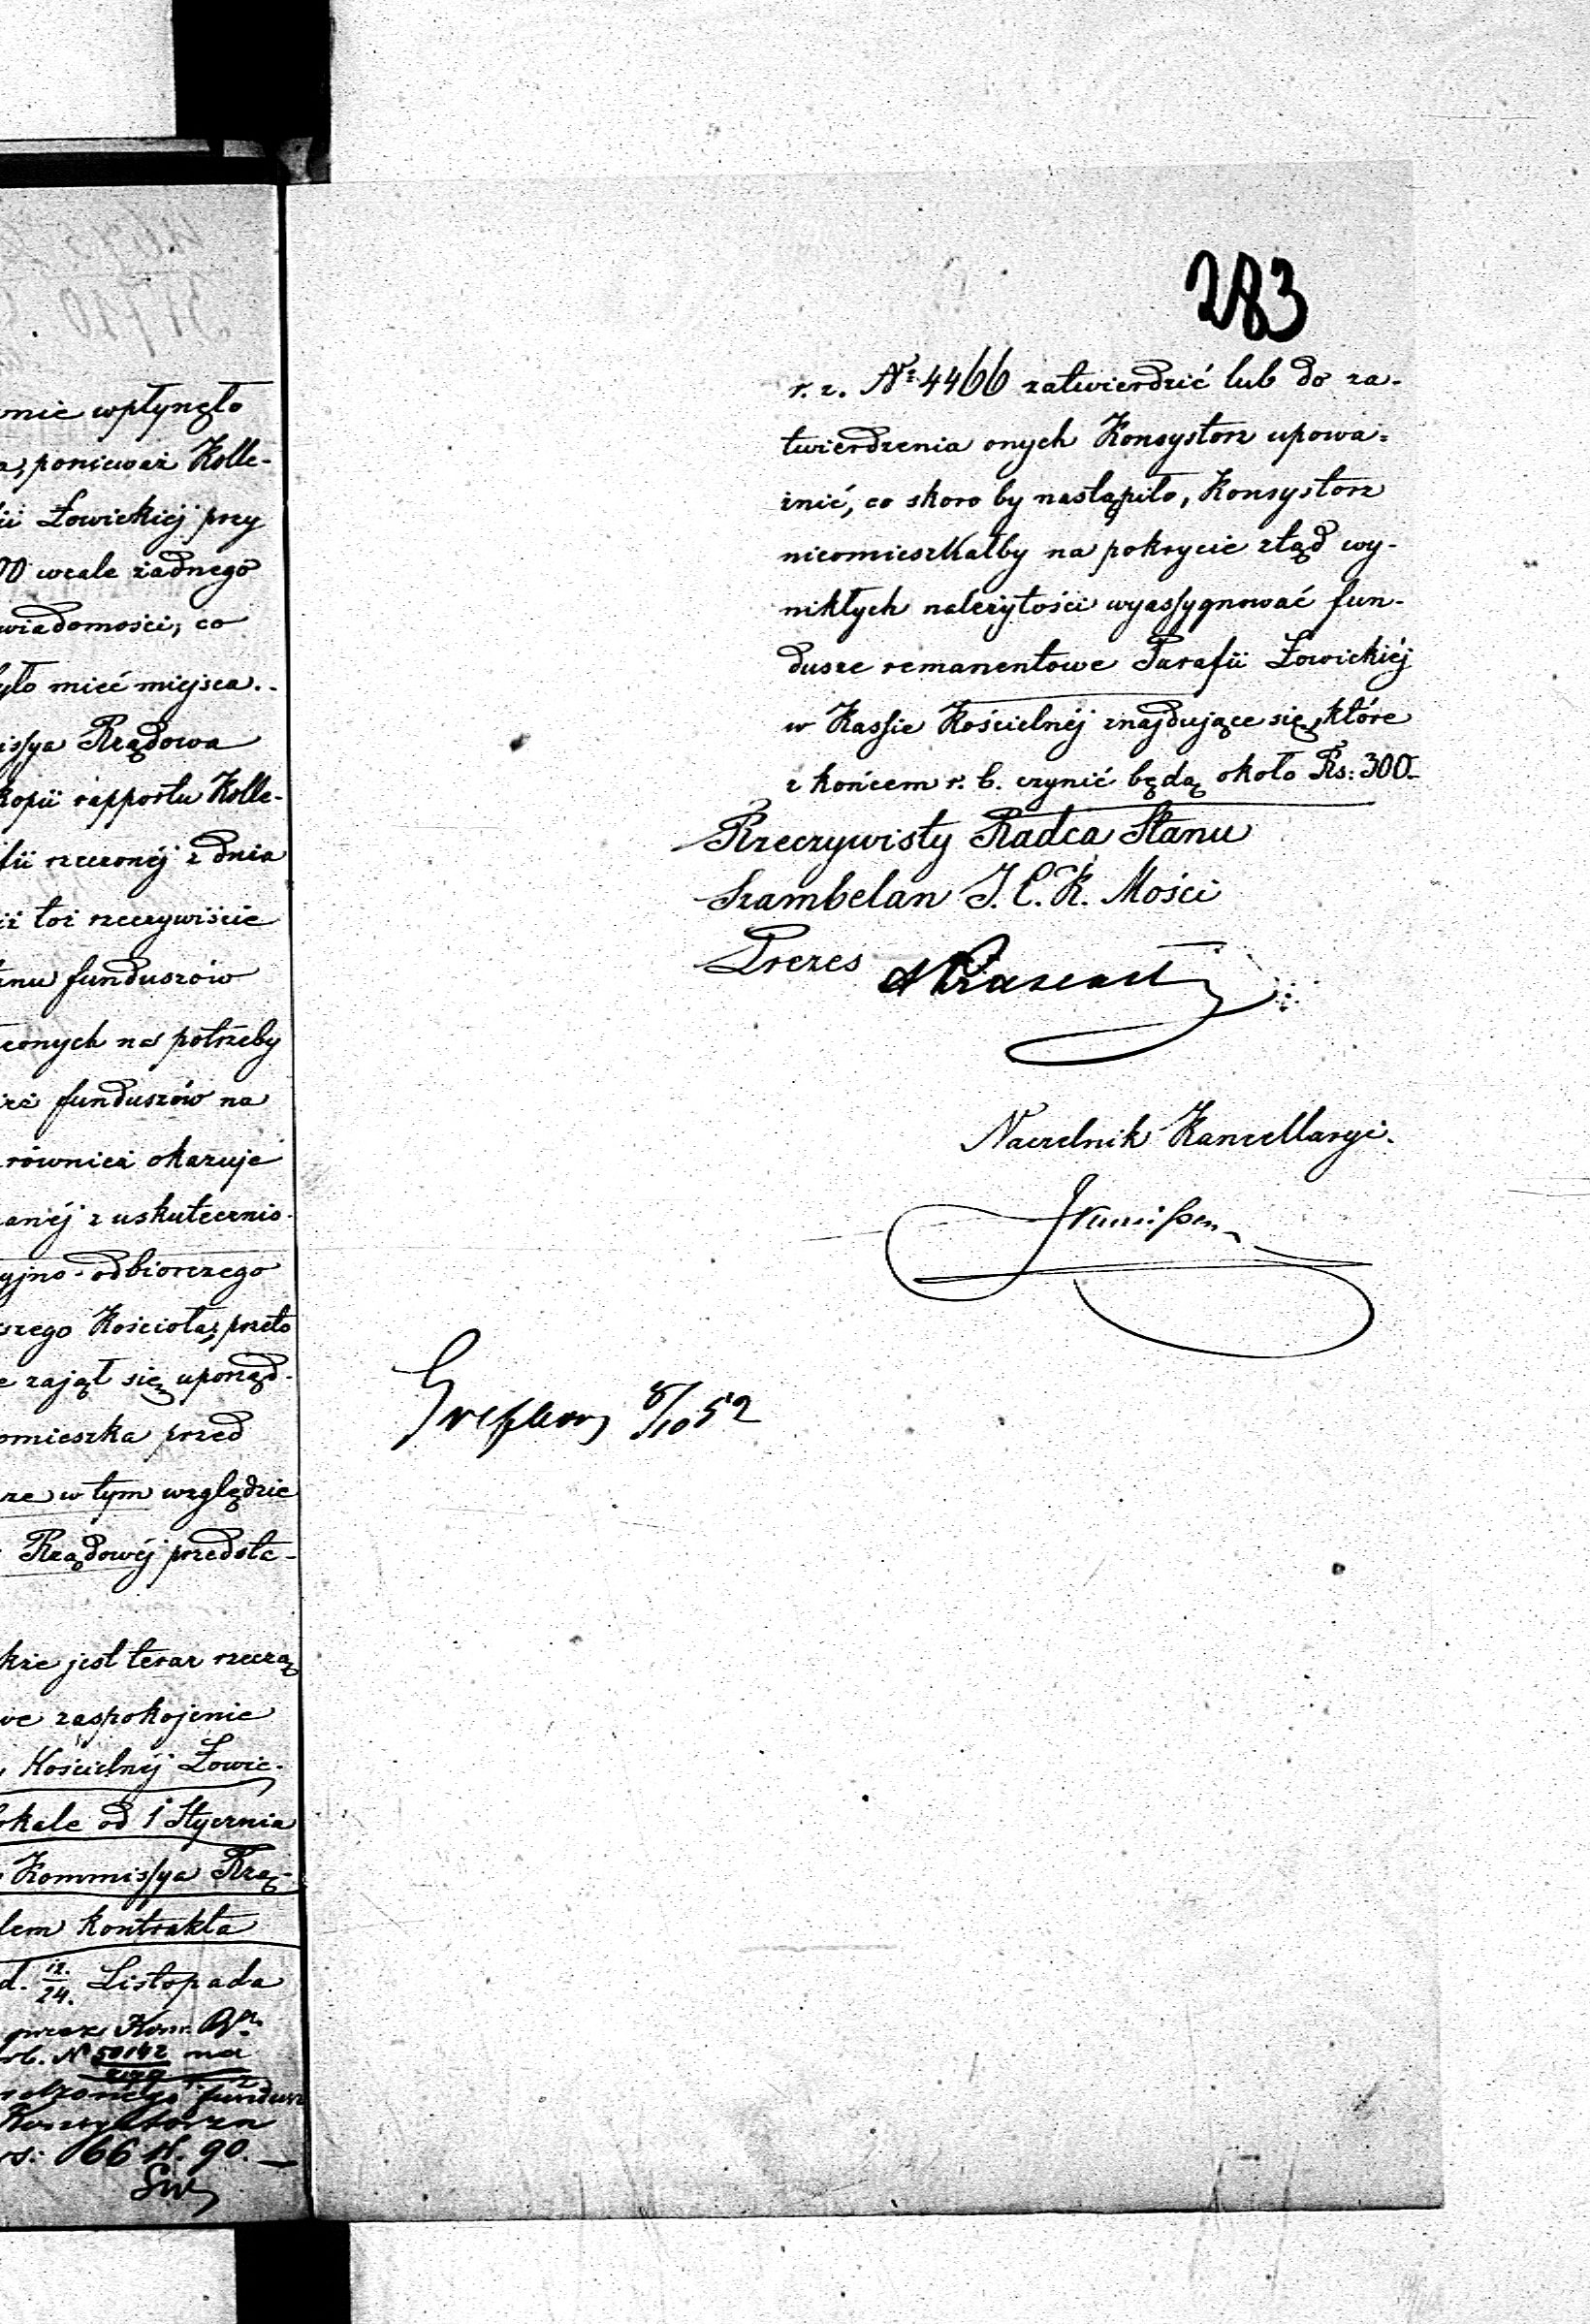 wnie wpłynęło
ponieważ Kolle-
Łowickiéj przy
00 wcale żadnego
wiadomości, co
było mieć miejsca.
issya Rządowa
kopii rapportu Kolle-
fii rzeczonéj z dnia
iż też rzeczywiście
anu funduszów
conych na potrzeby
też funduszów na
również okazuje
anéj z uskutecznio-
yjno-odbiorczego
szego Kościoła, przeto
zajął się uporząd-
omieszka przed
ze w tym względzie
Rządowéj przedsta-
kże jest teraz rzeczą
we zaspokojenie
Kościelnéj Łowic-
okale od 1 Stycznia
Kommissya Rzą-
lem kontrakta
d. 12./24. Listopada
przez Kom. Rz.
rb. N 50142 na
fundusz
Konsystorza
rs: 66 k. 90.—
283
r. z. Nº 4466 zatwierdzić lub do za-
twierdzenia onych Konsystorz upowa=
żnić, co skoro by nastąpiło, Konsystorz
nieomieszkałby na pokrycie ztąd wy-
nikłych należytości wyassygnować fun-
dusze remanentowe Parafii Łowickiéj
w Kassie Kościelnéj znajdujące się, które
z końcem r. b. czynić będą około Rs: 300.
Rzeczywisty Radca Stanu
Szambelan J. C. K. Mości
Prezes
Naczelnik Kancellaryi.
8/10 52